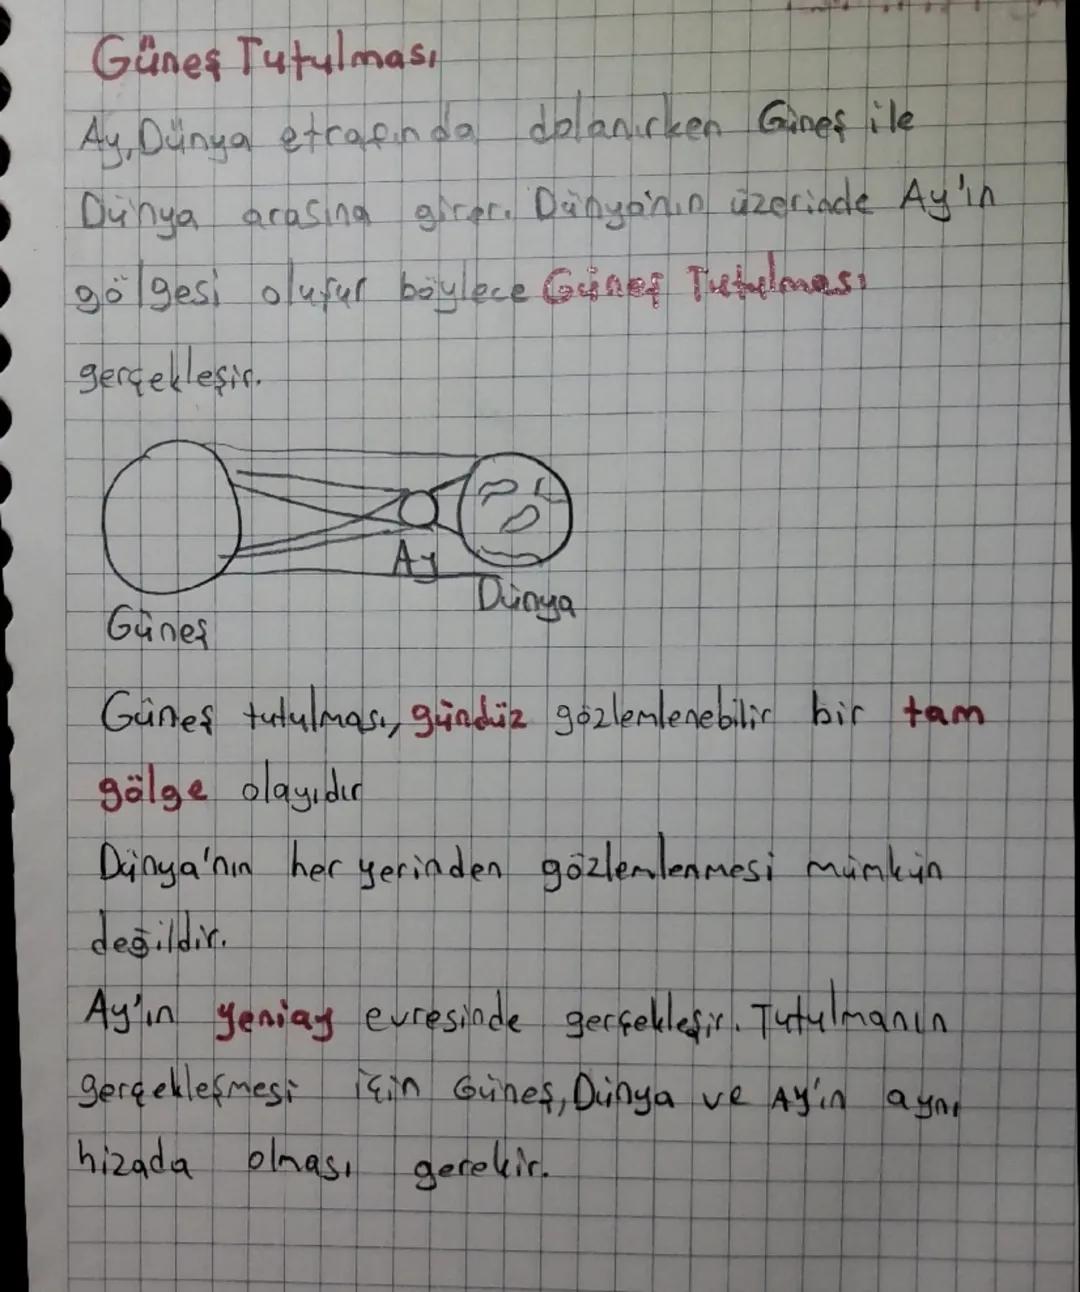 Güneş Tutulması
Ay, Dünya etrafında dolanırken Güneş ile
Dünya arasına girer. Dünya'nın üzerinde Ay'ın
gölgesi oluşur böylece Güneş Tutulması
gerçekleşir.
Ay
Dünya
Güneş
Güneş tutulması, gündüz gözlemlenebilir bir tam
gölge olayıdır
Dünya'nın her yerinden gözlemlenmesi mümkün
değildir.
Ay'ın yeniay evresinde gerçekleşir. Tutulmanın
gerçekleşmesi için Güneş, Dünya ve Ay'ın aynı
hizada olması gerekir.